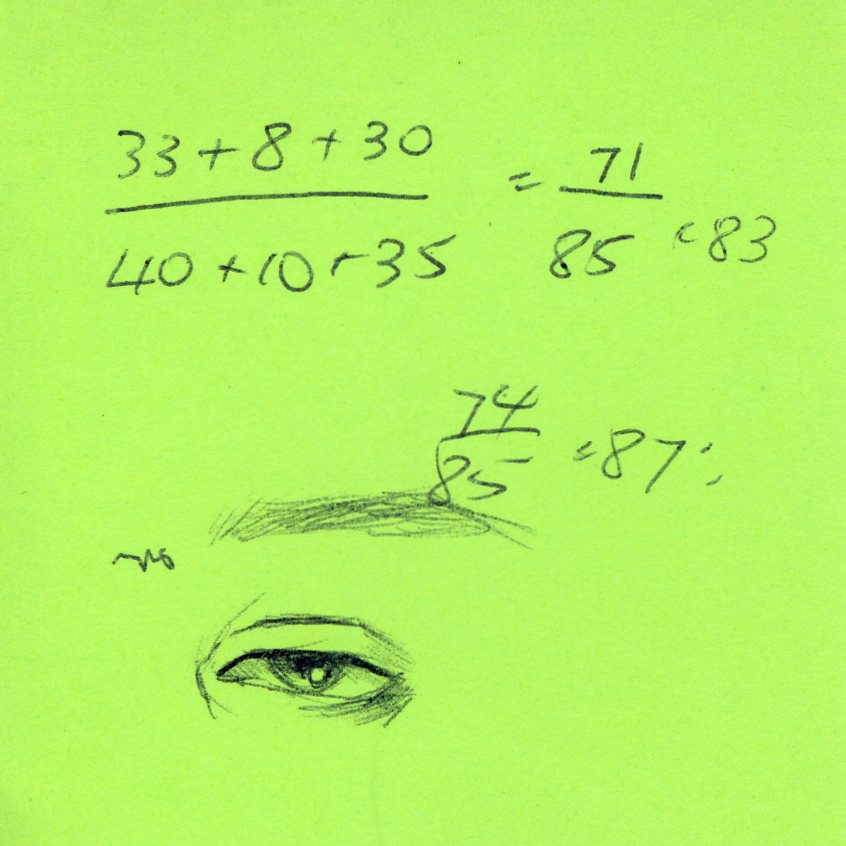 33+8+30
= 71
40+10+35 85 = 83
74
85 = 87%